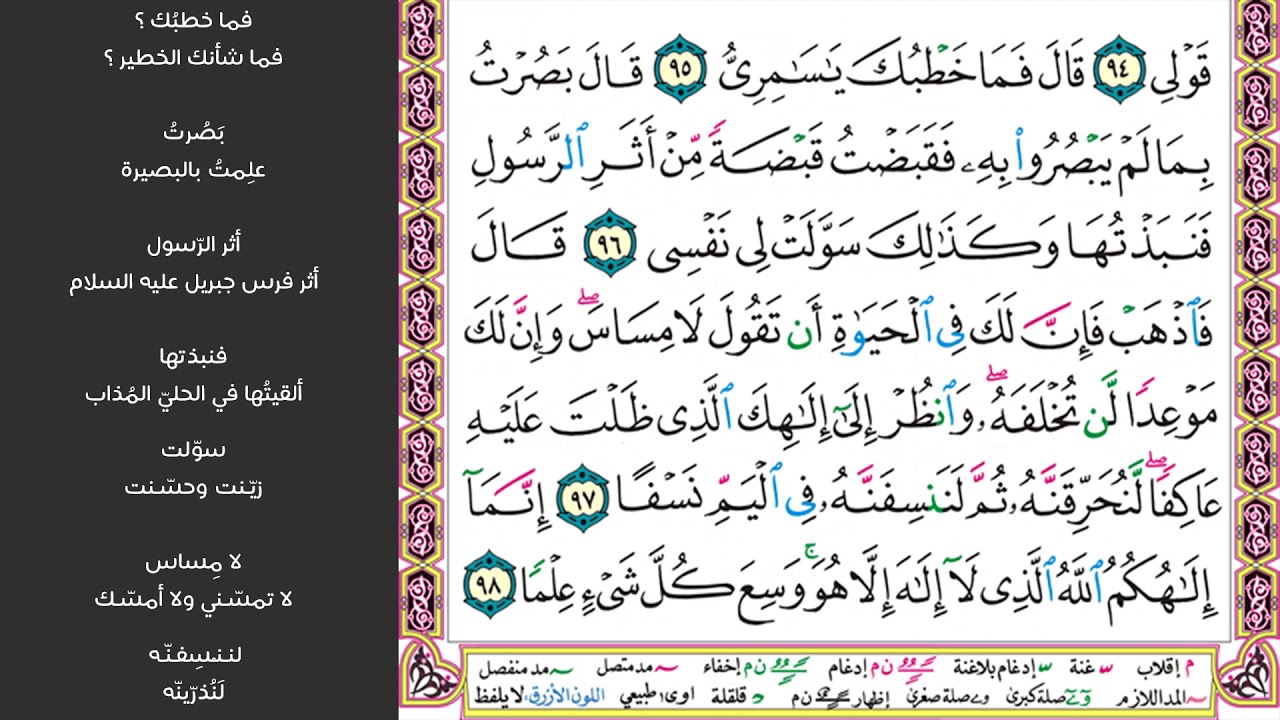 فما خطبُك ؟
فما شأنك الخطير ؟
بَصُرتُ
علِمتُ بالبصيرة
أثر الرّسول
أثر فرس جبريل عليه السلام
فنبذتها
ألقيتُها في الحليّ المُذاب
سوّلت
زيّنت وحسّنت
لا مِساس
لا تمسّني ولا أمسّك
لننسِفنّه
لَنُذرّينّه
قَوْلِى ٩٤ قَالَ فَمَا خَطْبُكَ يَـٰسَـٰمِرِىُّ ٩٥ قَالَ بَصُرْتُ
بِمَا لَمْ يَبْصُرُوا۟ بِهِۦ فَقَبَضْتُ قَبْضَةً مِّنْ أَثَرِ ٱلرَّسُولِ
فَنَبَذْتُهَا وَكَذَٰلِكَ سَوَّلَتْ لِى نَفْسِى ٩٦ قَالَ
فَٱذْهَبْ فَإِنَّ لَكَ فِى ٱلْحَيَوٰةِ أَن تَقُولَ لَا مِسَاسَ ۖ وَإِنَّ لَكَ
مَوْعِدًا لَّن تُخْلَفَهُۥ ۖ وَٱنظُرْ إِلَىٰٓ إِلَـٰهِكَ ٱلَّذِى ظَلْتَ عَلَيْهِ
عَاكِفًا ۖ لَّنُحَرِّقَنَّهُۥ ثُمَّ لَنَنسِفَنَّهُۥ فِى ٱلْيَمِّ نَسْفًا ٩٧ إِنَّمَآ
إِلَـٰهُكُمُ ٱللَّهُ ٱلَّذِى لَآ إِلَـٰهَ إِلَّا هُوَ ۚ وَسِعَ كُلَّ شَىْءٍ عِلْمًا ٩٨
م إقلاب س غنة س إدغام بلاغنة ن م إدغام ن م إخفاء مد متصل مد منفصل
المد اللازم صلة كبرى صلة صغرى إظهار ن م قلقلة اوى طبيعي اللون الأزرق لا يلفظ